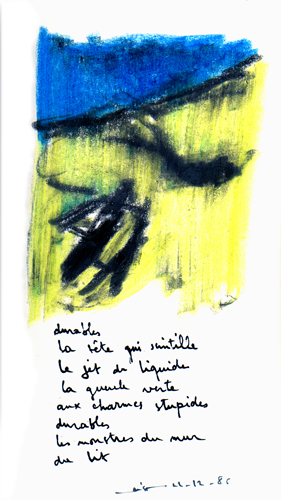 durables
la tête qui scintille
le jet de liquide
la gueule verte
aux charmes stupides
durables
les monstres du mur
du lit
22-12-86